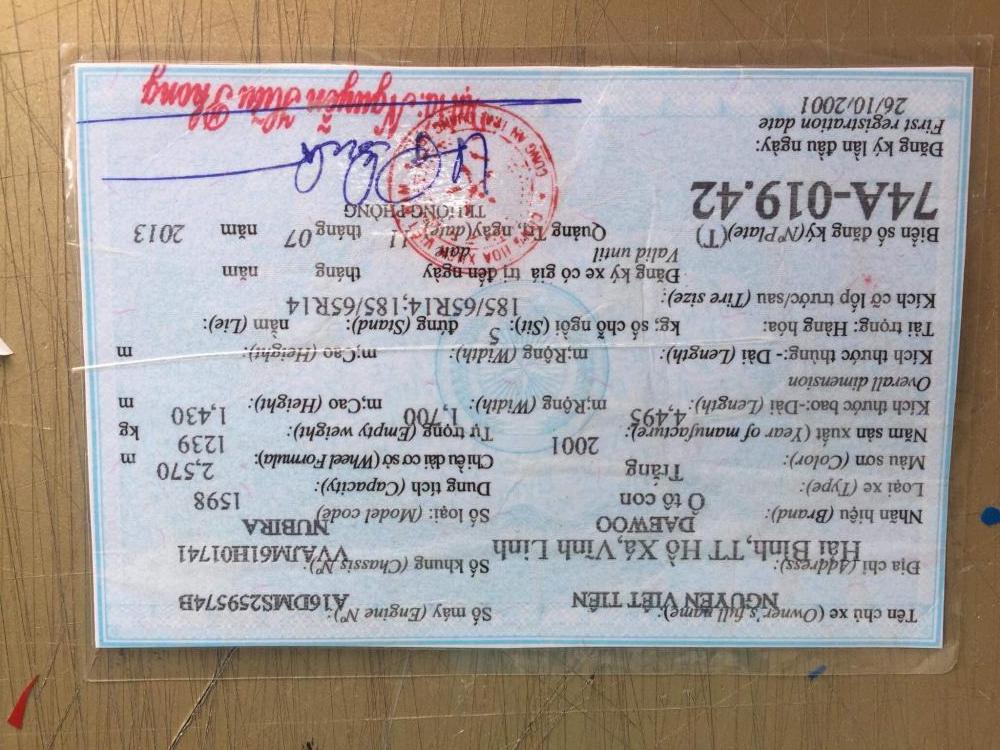 Tên chủ xe (Owner's full name): NGUYỄN VIẾT TIẾN Số máy (Engine Nº): A16DMS259574B
Địa chỉ (Address): Hải Bình,TT Hồ Xá,Vĩnh Linh Số khung (Chassis Nº): VVAJM61H01741
Nhãn hiệu (Brand): DAEWOO Số loại: (Model code) NUBIRA
Loại xe (Type): Ô tô con Dung tích (Capacity): 1598
Màu sơn (Color): Trắng Chiều dài cơ sở (Wheel Formula): 2,570 m
Năm sản xuất (Year of manufacture): 2001 Tự trọng (Empty weight): 1239 kg
Kích thước bao:-Dài (Length): 4,495 m;Rộng (Width): 1,700 m;Cao (Height): 1,430 m
Overall dimension
Kích thước thùng:- Dài (Length): m;Rộng (Width): m;Cao (Height): m
Tải trọng: Hàng hóa: kg; số chỗ ngồi (Sit): 5 đứng (Stand): nằm (Lie):
Kích cỡ lốp trước/sau (Tire size): 185/65R14;185/65R14
Đăng ký xe có giá trị đến ngày tháng năm
Valid until date
Biển số đăng ký (NºPlate)(T) Quảng Trị, ngày (date) 11 tháng 07 năm 2013
74A-019.42 TRƯỞNG PHÒNG
Đăng ký lần đầu ngày:
First registration date
26/10/2001
Nguyễn Hữu Phong